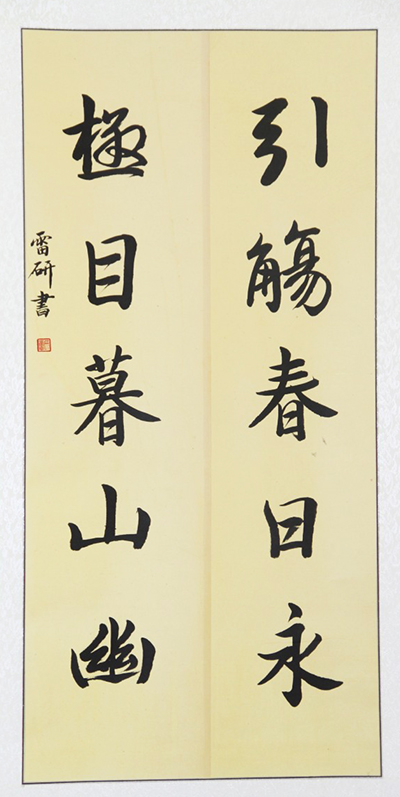 引觴春日永
極目暮山幽
雷研書